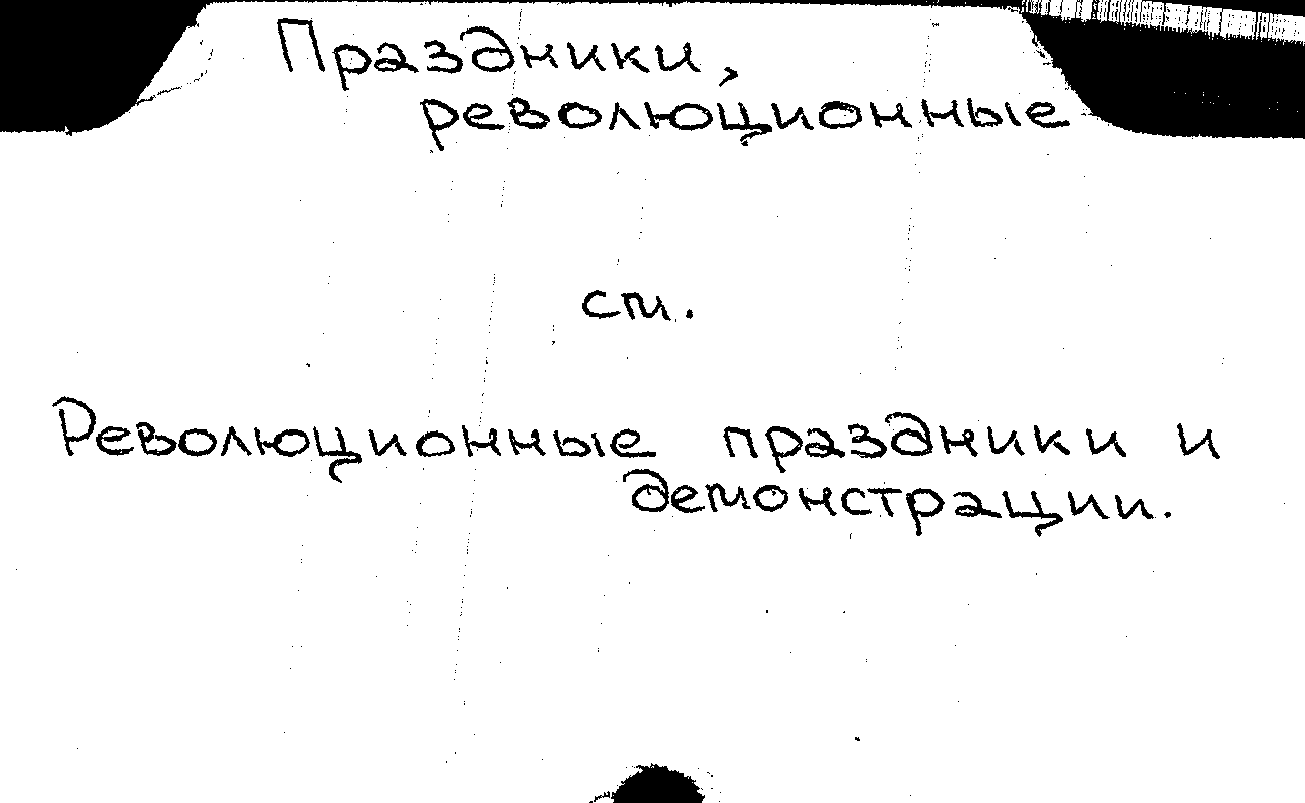 Праздники,
революционные
см.
Революционные праздники и
демонстрации.